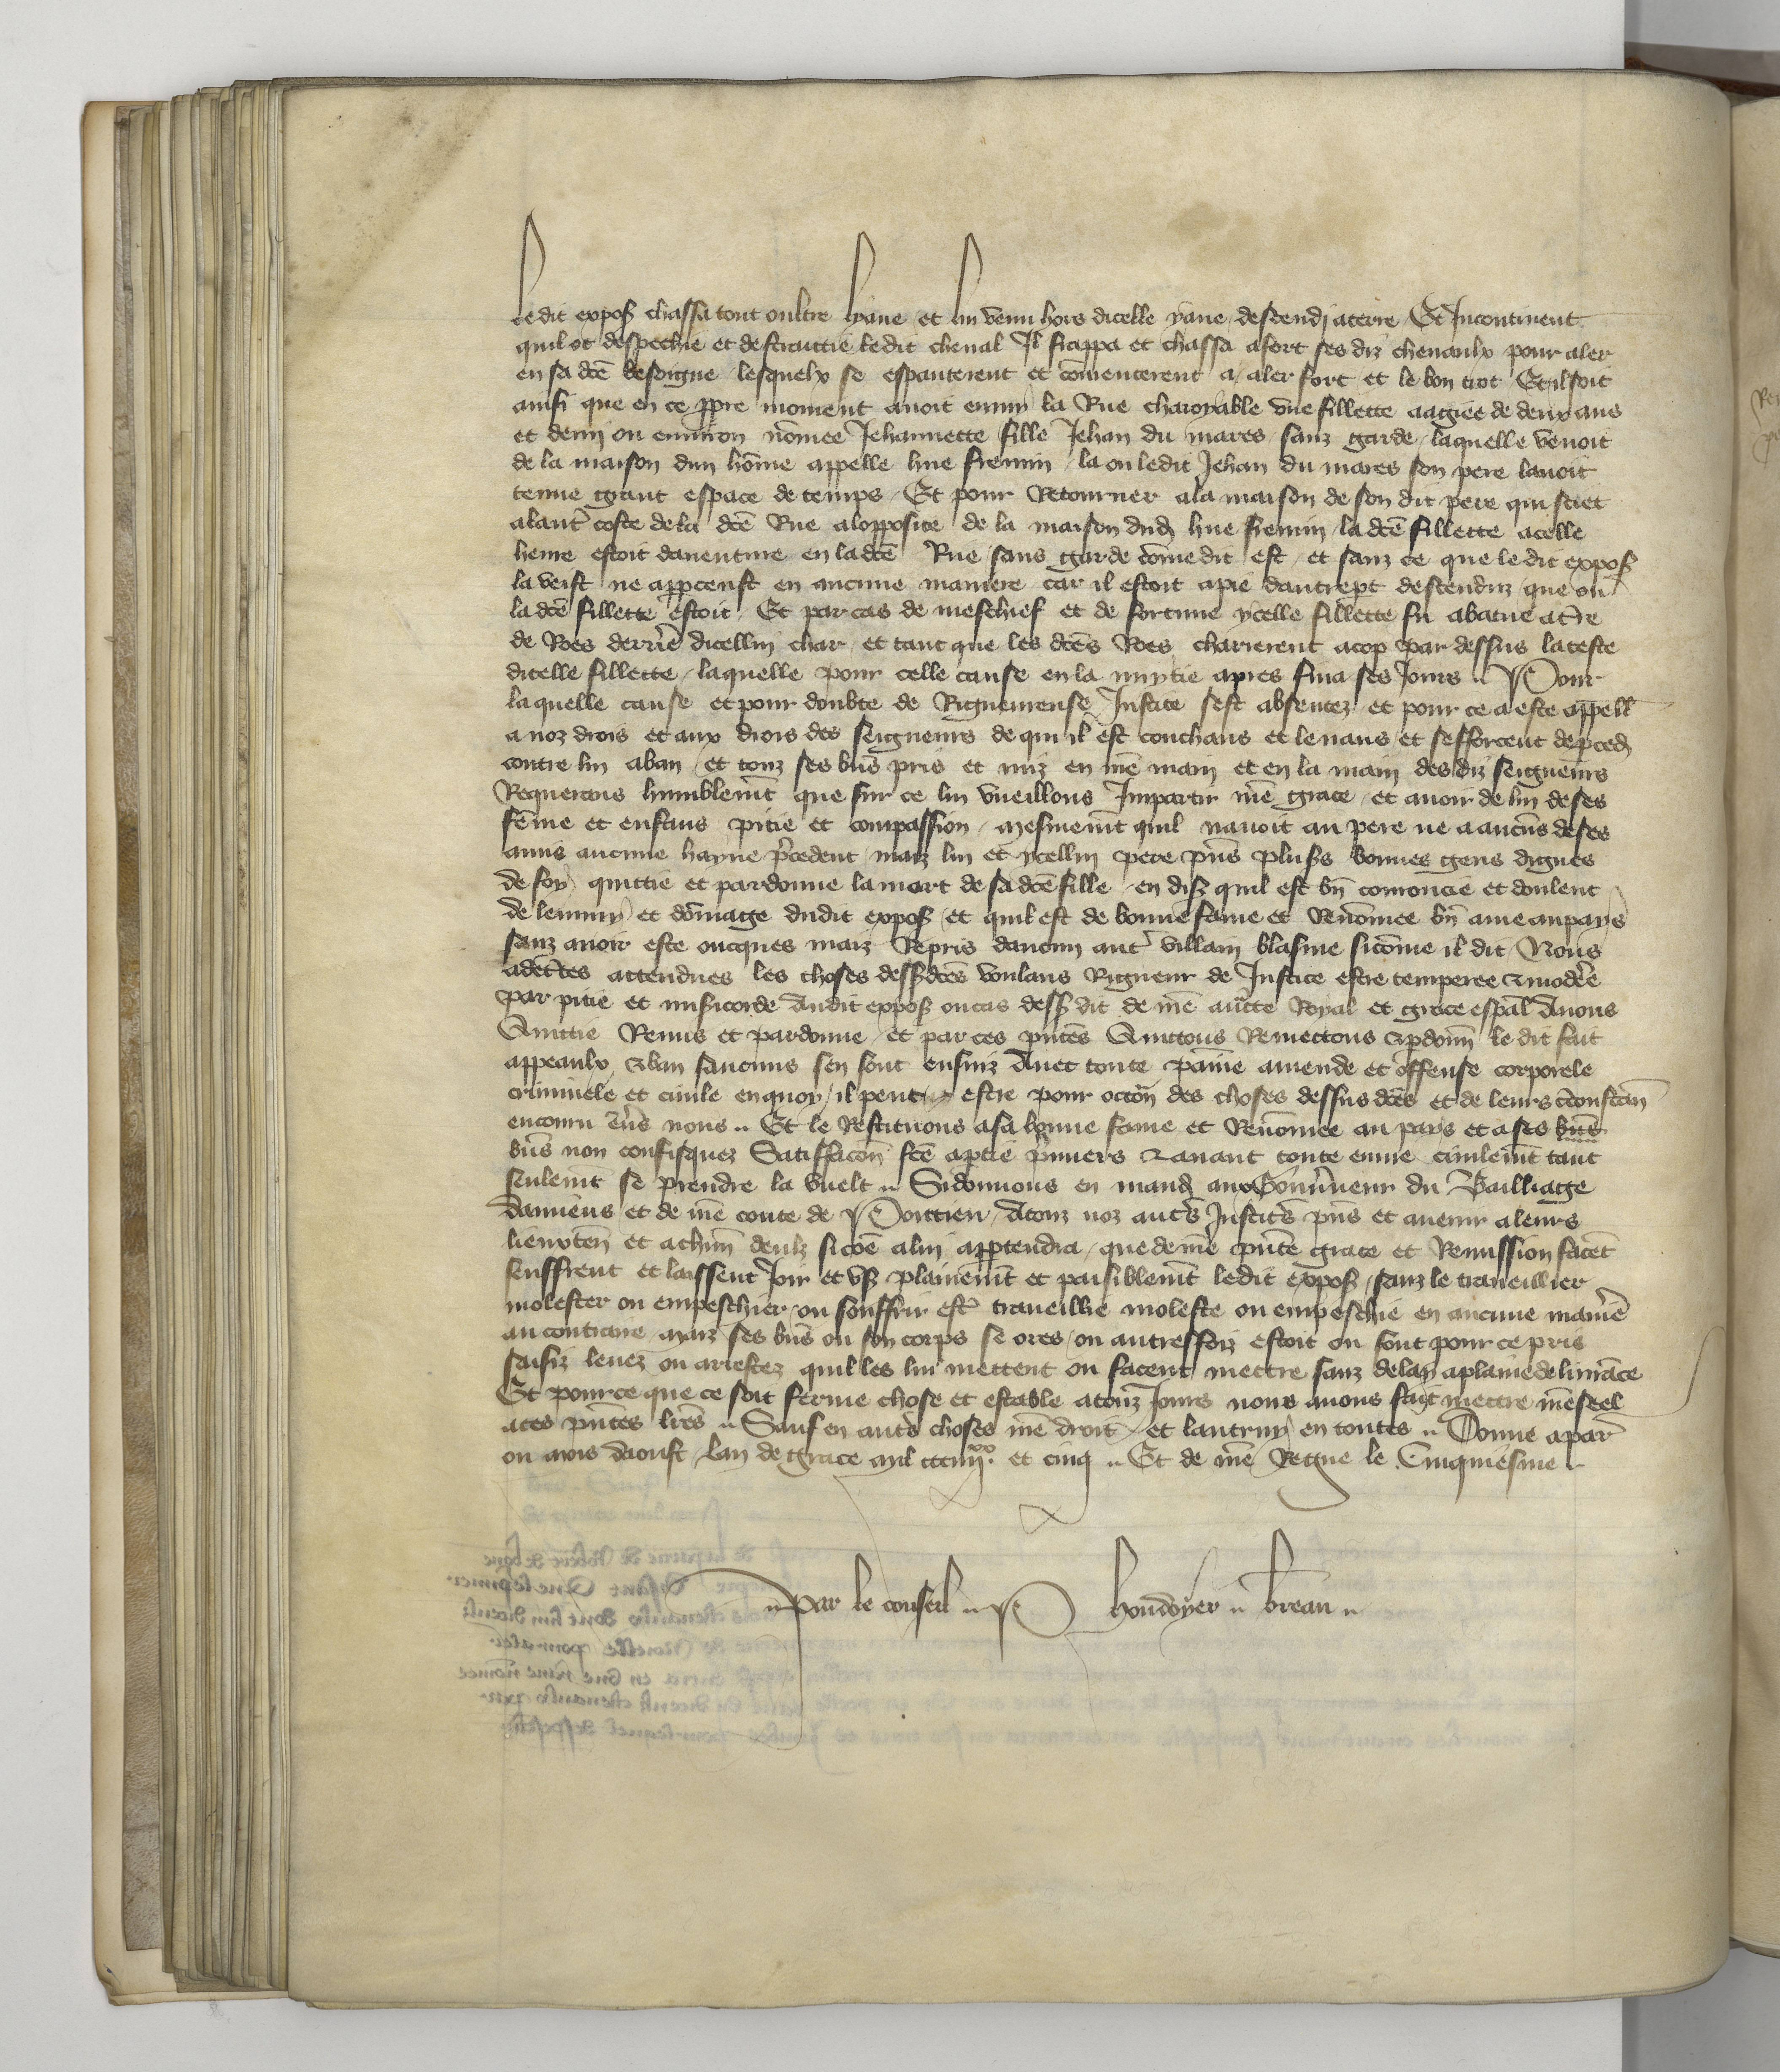 ledit expos chassa tout oultre lyaue et lui venu hors dicelle yaue descendi aterre Et Incontinent
quil ot despechie et destraictie ledit cheual Il frappa et chassa afort ses diz cheuaulx pour aler
en sa dce besoigne lesquelx se espanterent et comencerent a aler fort et le bon trot Et ilsoit
ainsi que en ce ppre moment auoit enmy la Rue charoyable vne fillette aagiee de deux ans
et demy ou enuiron nomee Jehannette fille Jehan du mares sanz garde laquelle venoit
de la maison dun home appelle hue fremin la ou ledit Jehan du mares son pere lauoit
tenue grant espace de temps Et pour Retourner ala maison de son dit pere qui siet
alautre coste dela dce Rue alopposite de la maison dud hue fremin la dce fillette acelle
heure estoit dauenture en ladce Rue sans garde come dit est et sanz ce que ledit expos
la veist ne appceust en aucune maniere car il estoit apie dautrept descenduz que ou
la dce fillette estoit Et par cas de meschief et de fortune ycelle fillette fu abatue atre
de Roes derriere dicellui char et tant que les dces Roes charierent acop par dessus lateste
dicelle fillette laquelle pour celle cause en la nuytie apres fina ses Jours Pour
laquelle cause et pour doubte de Rigueureuse Justice sest absentez et pour ce a este appell
a noz drois et aux drois des seigneurs de qui il est couchans et leuans et sefforcent de pced
contre lui aban et touz ses bns pris et miz en nre main et en la main des diz seigneurs
Requerans humblemt que sur ce lui vueillons Impartir nre grace et auoir de lui de ses
feme et enfans pitie et compassion mesmemt quil nauoit au pere ne a aucuns de ses
amis aucune hayne precedent maiz lui et ycellui pere pns plusrs bonnes gens dignes
de foy quittie et pardonne la mort de sa dce fille en dist quil est bn corroucie et doulent
de lennuy et domage dudit expos et quil est de bonne fame et Renomee bn ame aupays
sanz auoir este oncques maiz Repris daucun autre villain blasme sicome il dit Nous
adecertes attendues les choses dessdces voulans Rigueur de Justice estre temperee & moderee
par pitie et misicorde Audit expos oucas dess dit de nre aucte Royal et grace espal Auons
Quittie Remis et pardonne et par ces pntes Quittons Remettons & pdonn le dit fait
appeaulx & ban saucuns sen sont ensuiz Auec toute painne amende et offense corporele
criminele et ciuile enquoy il peut estre pour occon des choses dessus dces et de leurs circonstan
encouru enuers nous Et le Restituons asa bonne fame et Renomee au pays et a ses bns
bns non confisquez Satiffacon fce aptie pmiers & auant toute euure ciuilemt tant
seulemt se prendre la vuelt Sidonnons en mand aux Gouuerneur du Bailliage
damiens et de nre conte de Pontieu Atouz noz autres Justiciers pns et auenir aleurs
lieuxten et achun deulz si coe alui apptendra que de nre pnte grace et Remission facet
seuffrent et laissent Joir et vser plainemt et paisiblemt ledit expos sanz le traueillier
molester ou empeschier ou souffrir estre traueillie moleste ou empeschie en aucune maniere
au contraire maiz ses bns ou son corps se ores ou autreffoiz estoit ou sont pource pris
saisiz leuez ou arrestez quil les lui mettent ou facent mettre sanz delay aplaine deliurace
Et pource que ce soit ferme chose et estable atouz Jours nous auons fait mettre nre seel
aces pntes lres Sauf en autres choses nre droit et lautruy en toutes Donne apar
ou mois daoust lan de grace mil ccciiijxx et cinq Et de nre Regne le Cinquiesme
par le conseil P houdoyer breau